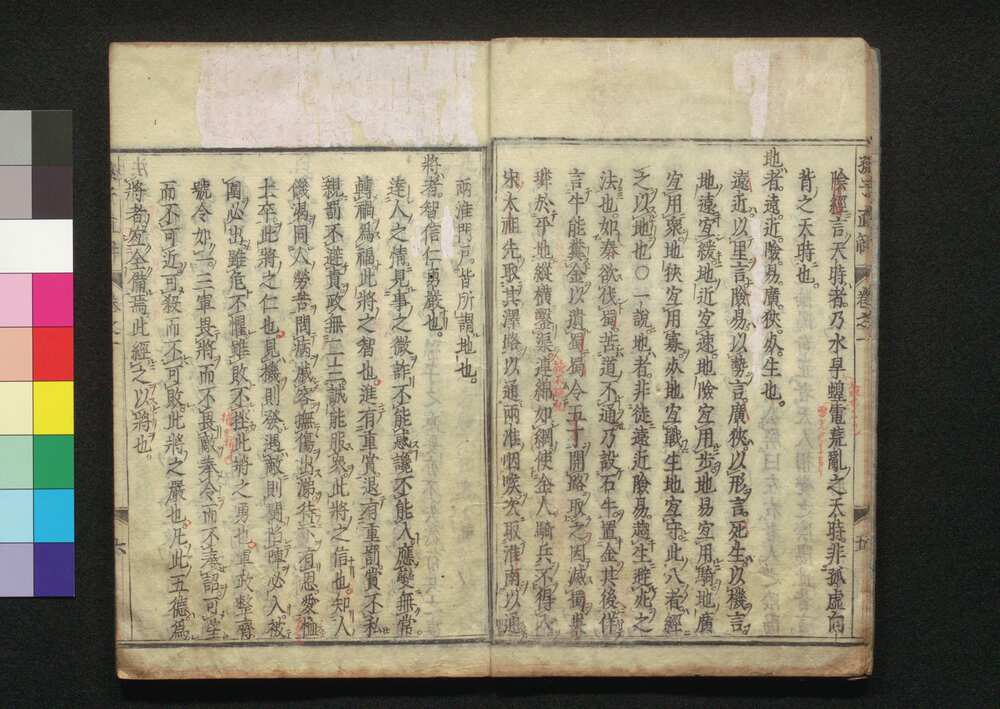 陰經言天時者乃水旱蝗雹荒亂之天時非孤虛向
背之天時也
地者遠近險易廣狹死生也
遠近以里言險易以勢言廣狹以形言死生以機言
地遠宜緩地近宜速地險宜用步地易宜用騎地廣
宜用衆地狹宜用寡死地宜戰生地宜守此八者經
之以地也○一說地者非徒遠近險易趨生避死之
法也如秦欲伐蜀苦道不通乃設石牛置金其後佯
言牛能糞金以遺蜀蜀令五丁開路取之因滅蜀畢
於平地縱橫鑿渠連綿如綱使金人騎兵不得入
宋太祖先取其澤潞以通兩淮咽喉次取淮南以通
兩淮門戸皆所謂地也
將者智信仁勇嚴也
達人之情見事之微詐不能惑讒不能入應變無常
轉禍爲福此將之智也進有重賞退有重罰賞不私
親罰不避貴政無二三誠能服衆此將之信也知人
饑渴同人勞苦問病容撫傷出涕待有恩愛恤
士卒此將之仁也見機則發遇敵則鬪陣必入被
圍必出雖危不懼雖敗不挫此將之勇也軍政整齊
號令如一三軍畏將而不畏敵奉令而不奉詔可望
而不可近可殺而不可敗此將之嚴也凡此五德爲
將者宜全備焉此經之以將也
孫子
卷之一
六